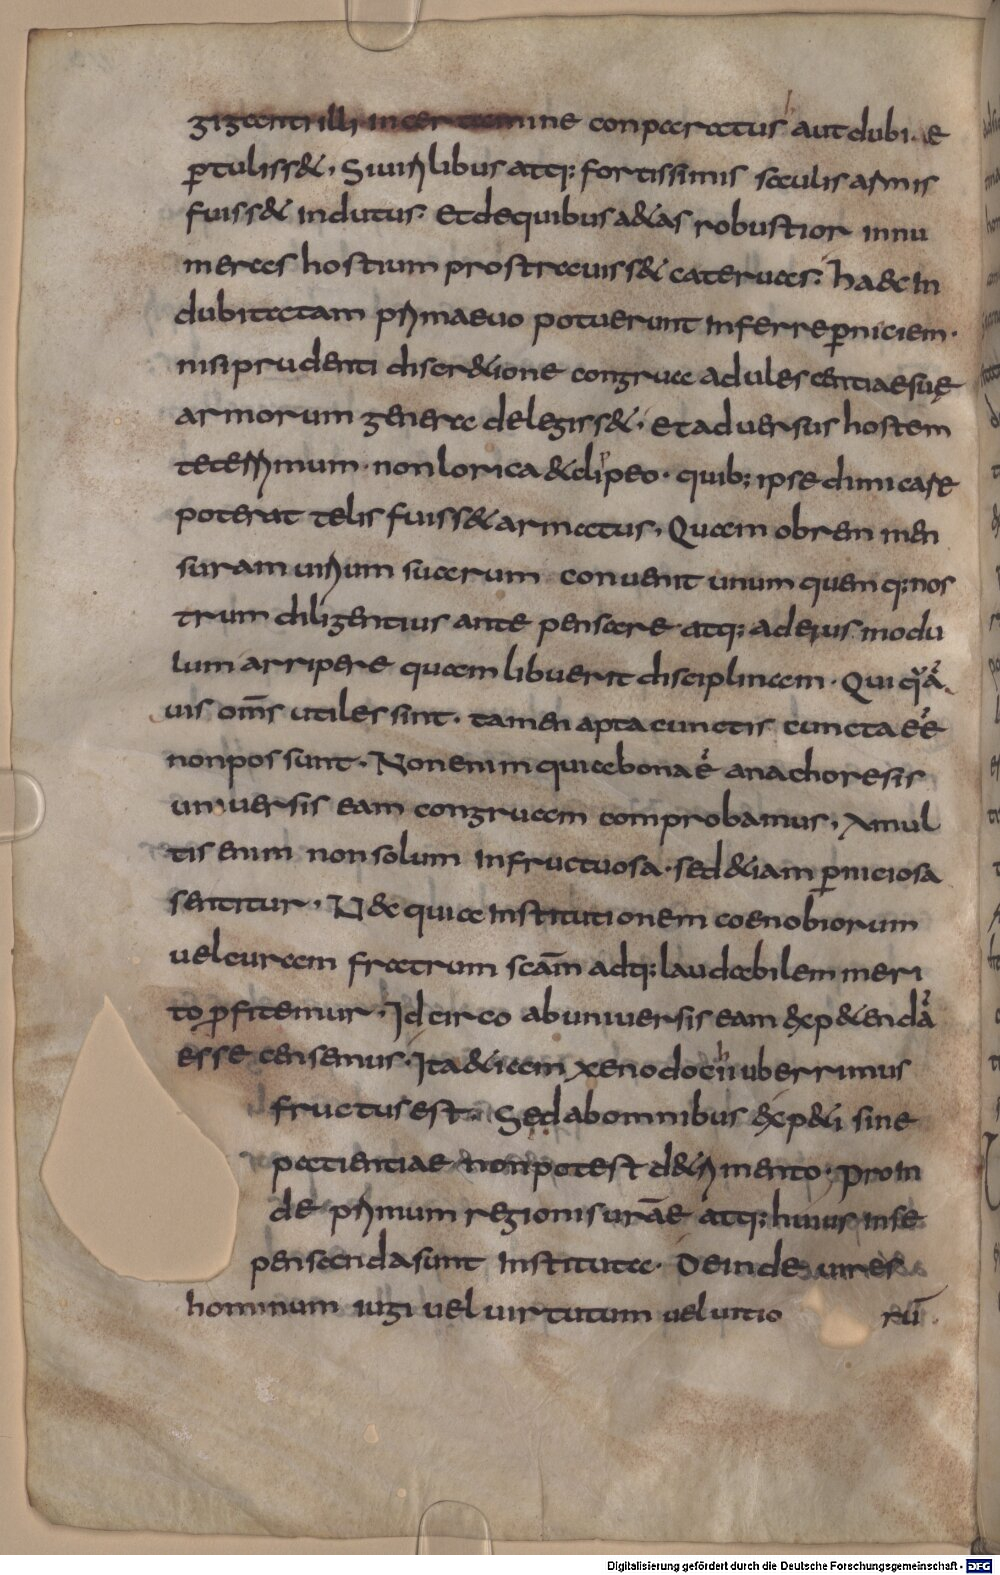 giganti illi in certamine conparatus aut dubi e
ꝑtuliss&, Si uirilibus atq; fortissimis saeculis armis
fuiss& indutus. Et de quibus a&as robustior innu
meras hostium prostrauiss& cateruas. hadc in
dubitatam primaeuo potuerunt inferre ꝑniciem.
nisi prudenti discr&ione congrua adulescentiae suę
armorum genera delegiss&, et aduersus hostem
teterrimum non lorica & clipeo. quib; ipse dimicare
poterat telis fuiss& armatus, Quam ob rem men
suram uirium suarum conuenit unum quemq; nos
trum diligentius ante pensare atq; ad eius modu
lum arripere quam libuerit disciplinam. Qui q̓uā
uis om̄s utiles sint. tamen apta cunctis cuncta ee̓
non possunt. Non enim quia bona e̓ anachoresis
uniuersis eam congruam comprobamus, A mul
tis enim non solum infructuosa. sed &iam ꝑniciosa
sentitur, Nec quia institutionem coenobiorum
uel curam fratrum scām adq; laudabilem meri
to ꝓfitemur, Idcirco ab uniuersis eam exp&endā
esse censemus. Ita &iam xenodochii uberrimus
fructus est. Sed ab omnibus exp&i sine
patientiae non potest d&rimento. Proin
de primum regionis urāe atq; huius inse
pensanda sunt instituta. Deinde uires
hominum iugi uel uirtutum uel uitio rū.
Digitalisierung gefördert durch die Deutsche Forschungsgemeinschaft - DFG